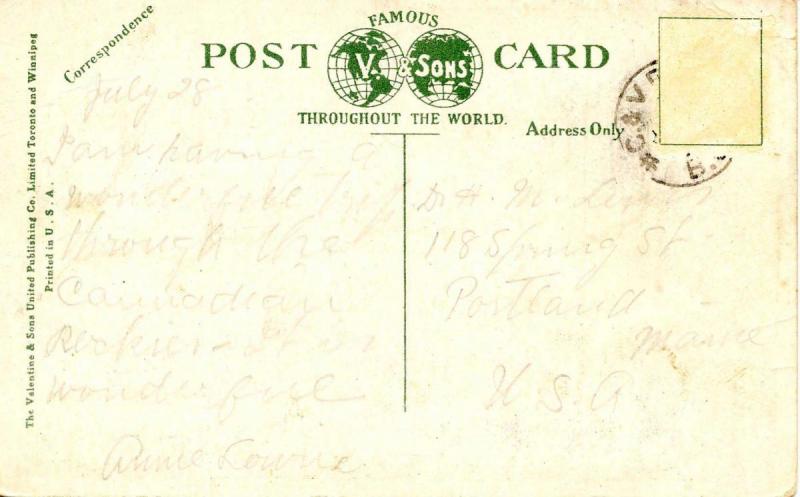 FAMOUS
POST V. & SONS CARD
THROUGHOUT THE WORLD.
Correspondence
Address Only
The Valentine & Sons United Publishing Co. Limited Toronto and Winnipeg
Printed in U. S. A.
July 28
I am having a
wonderful trip
through the
Cannadian
Rockies - It is
wonderful
Annie
Dr. H. M.
118 Spring St
Portland
Maine
U S A
B.